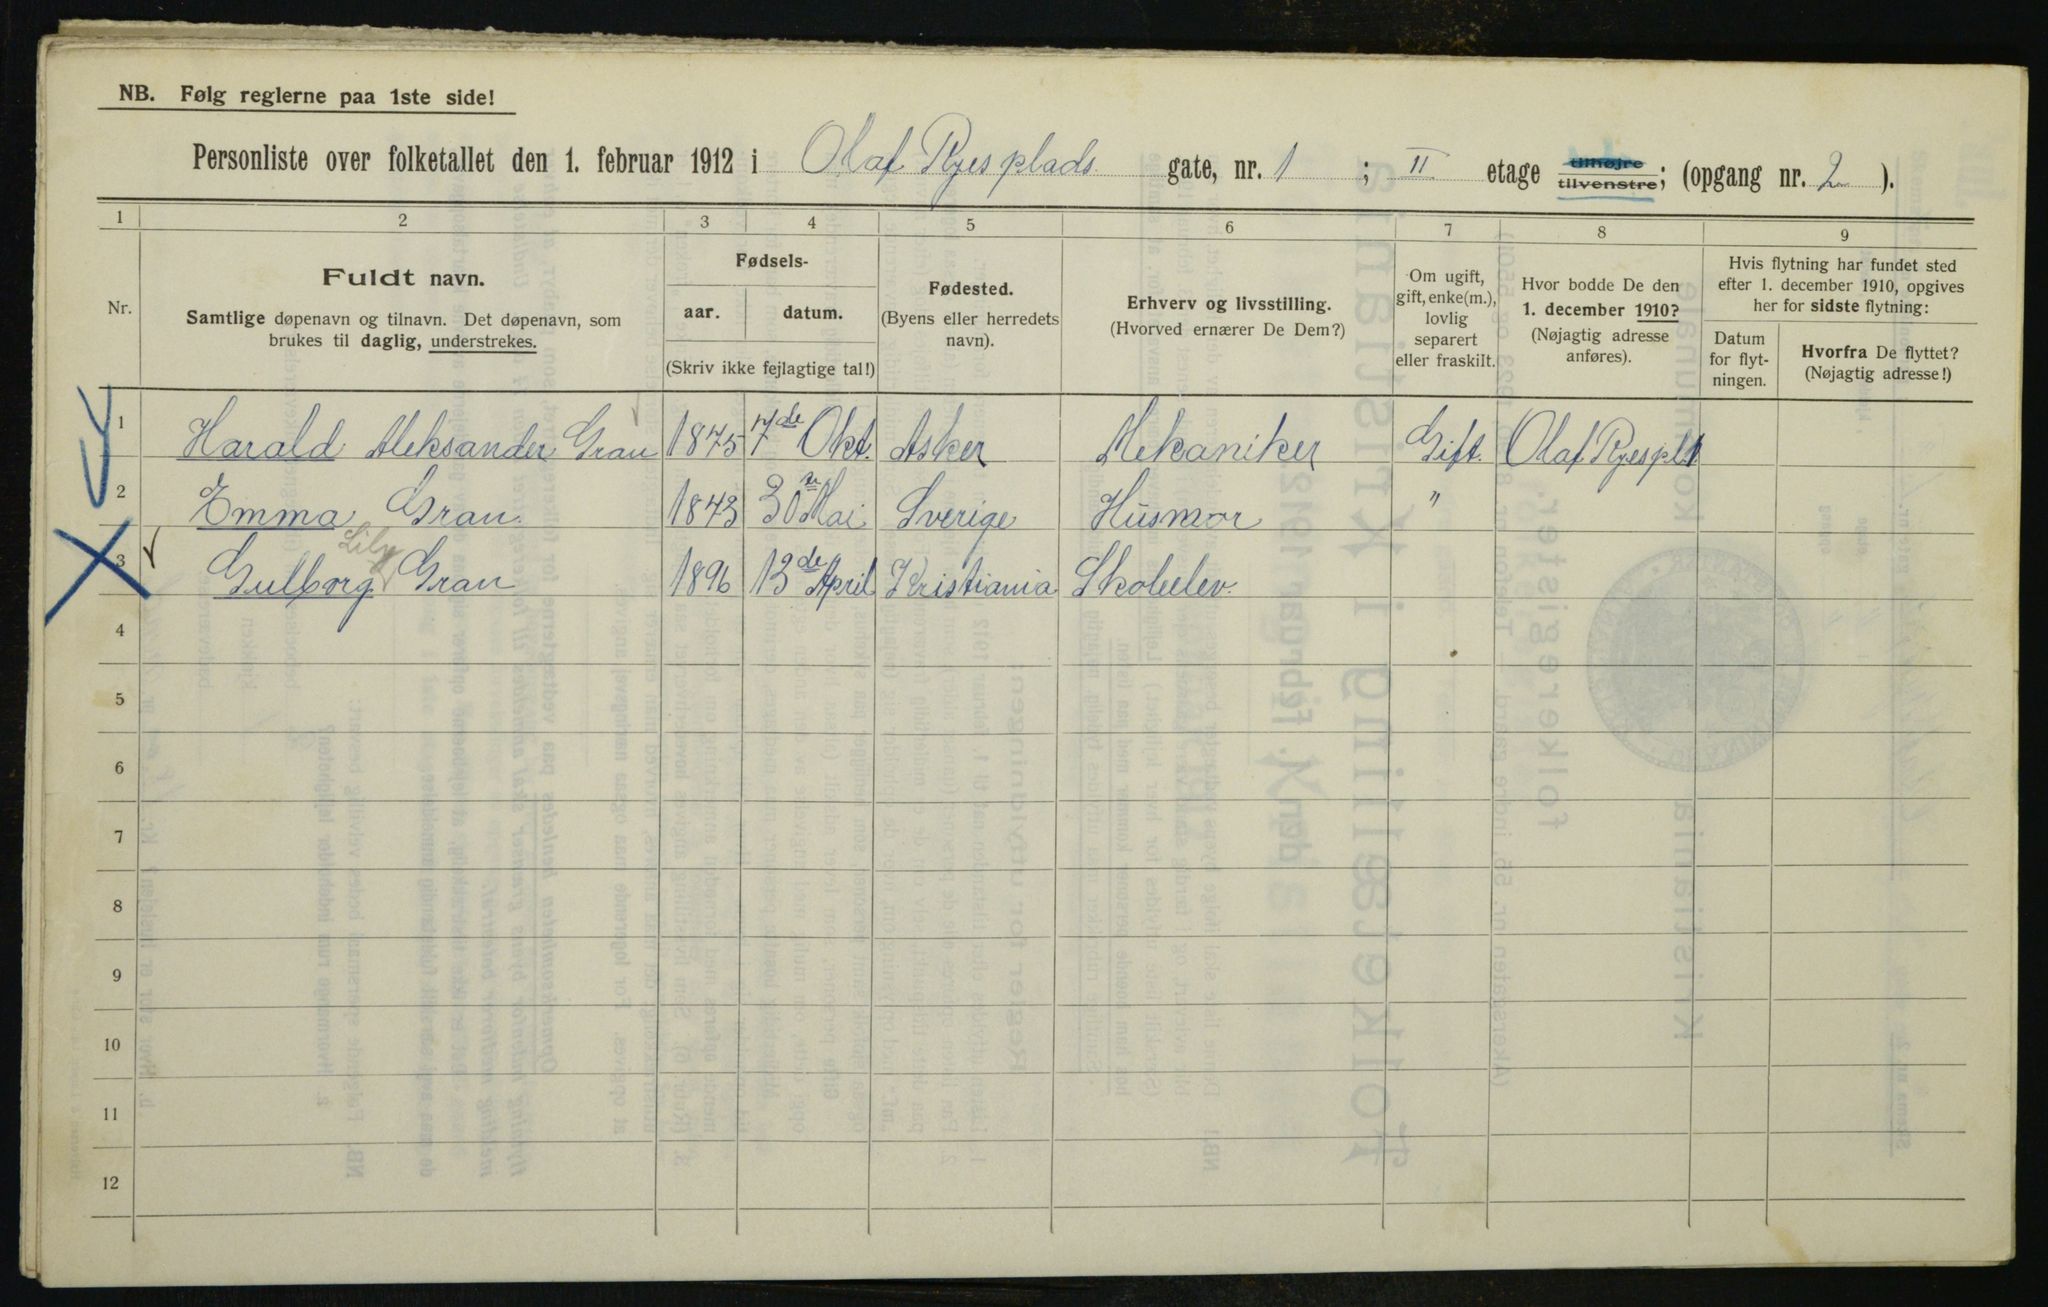 NB. Følg reglerne paa 1ste side!
Personliste over folketallet den 1. februar 1912 i Olaf Ryes plads gate, nr. 1 ; II etage tilhøjre tilvenstre; (opgang nr. 2 ).
1 2 3 4 5 6 7 8 9
Nr.
Fuldt navn.
Samtlige døpenavn og tilnavn. Det døpenavn, som
brukes til daglig, understrekes.
Fødsels-
aar. datum.
(Skriv ikke fejlagtige tal!)
Fødested.
(Byens eller herredets
navn).
Erhverv og livsstilling.
(Hvorved ernærer De Dem?)
Om ugift,
gift, enke(m.),
lovlig
separert
eller fraskilt.
Hvor bodde De den
1. december 1910?
(Nøjagtig adresse
anføres).
Hvis flytning har fundet sted
efter 1. december 1910, opgives
her for sidste flytning:
Datum
for flyt-
ningen.
Hvorfra De flyttet?
(Nøjagtig adresse!)
1 Harald Aleksander Gran 1875 7de Okt. Asker Mekaniker Gift. Olaf Ryespl. 1
2 Emma Gran. 1873 30te Mai Sverige Husmor "
Lily
3 Gulborg Gran 1896 13de April Kristiania Skoleelev.
4
5
6
7
8
9
10
11
12